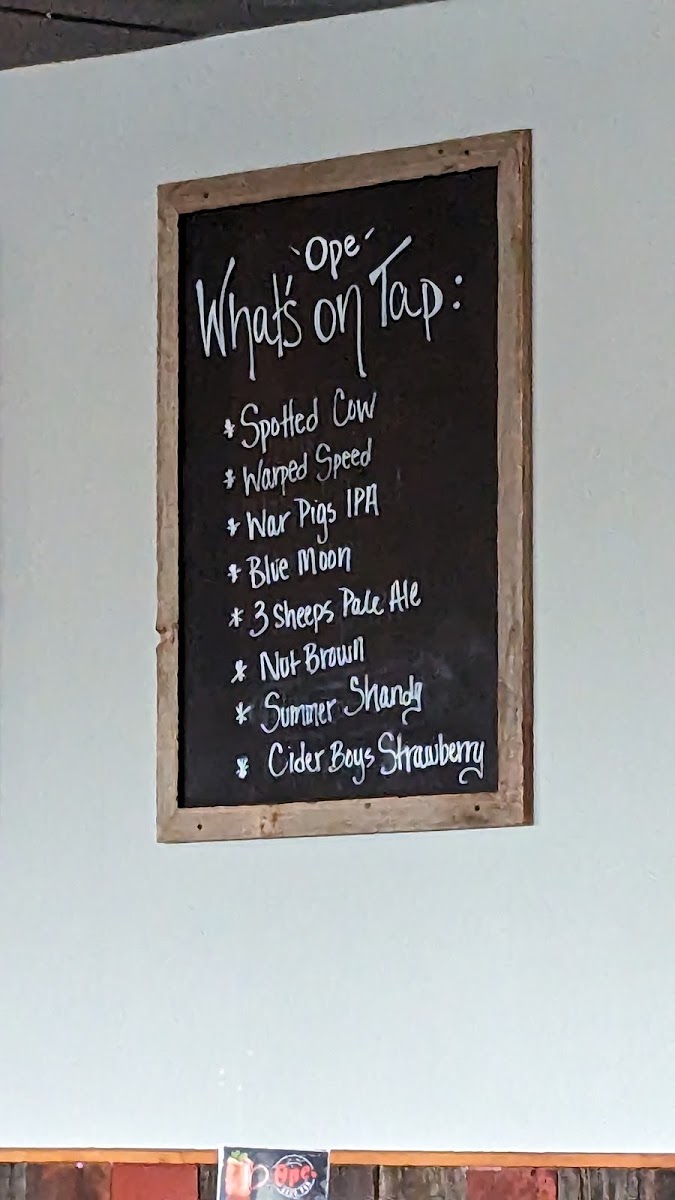 Ope
What's on Tap:
* Spotted Cow
* Warped Speed
* War Pigs IPA
* Blue Moon
* 3 Sheeps Pale Ale
* Nut Brown
* Summer Shandy
* Cider Boys Strawberry
Ope